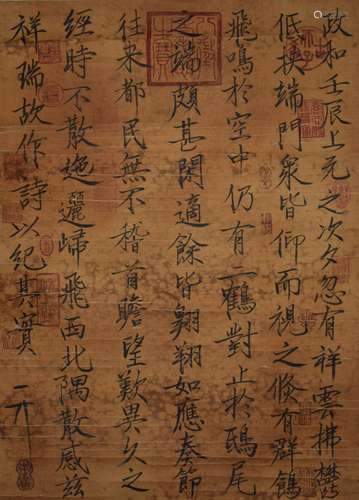 政和壬辰上元之次夕忽有祥雲拂鬱
低映端門眾皆仰而視之倏有群鶴
飛鳴於空中仍有二鶴對止於鴟尾
之端頗甚閑適餘皆翱翔如應奏節
往來都民無不稽首瞻望歎異久之
經時不散迤邐歸飛西北隅散感茲
祥瑞故作詩以紀其實